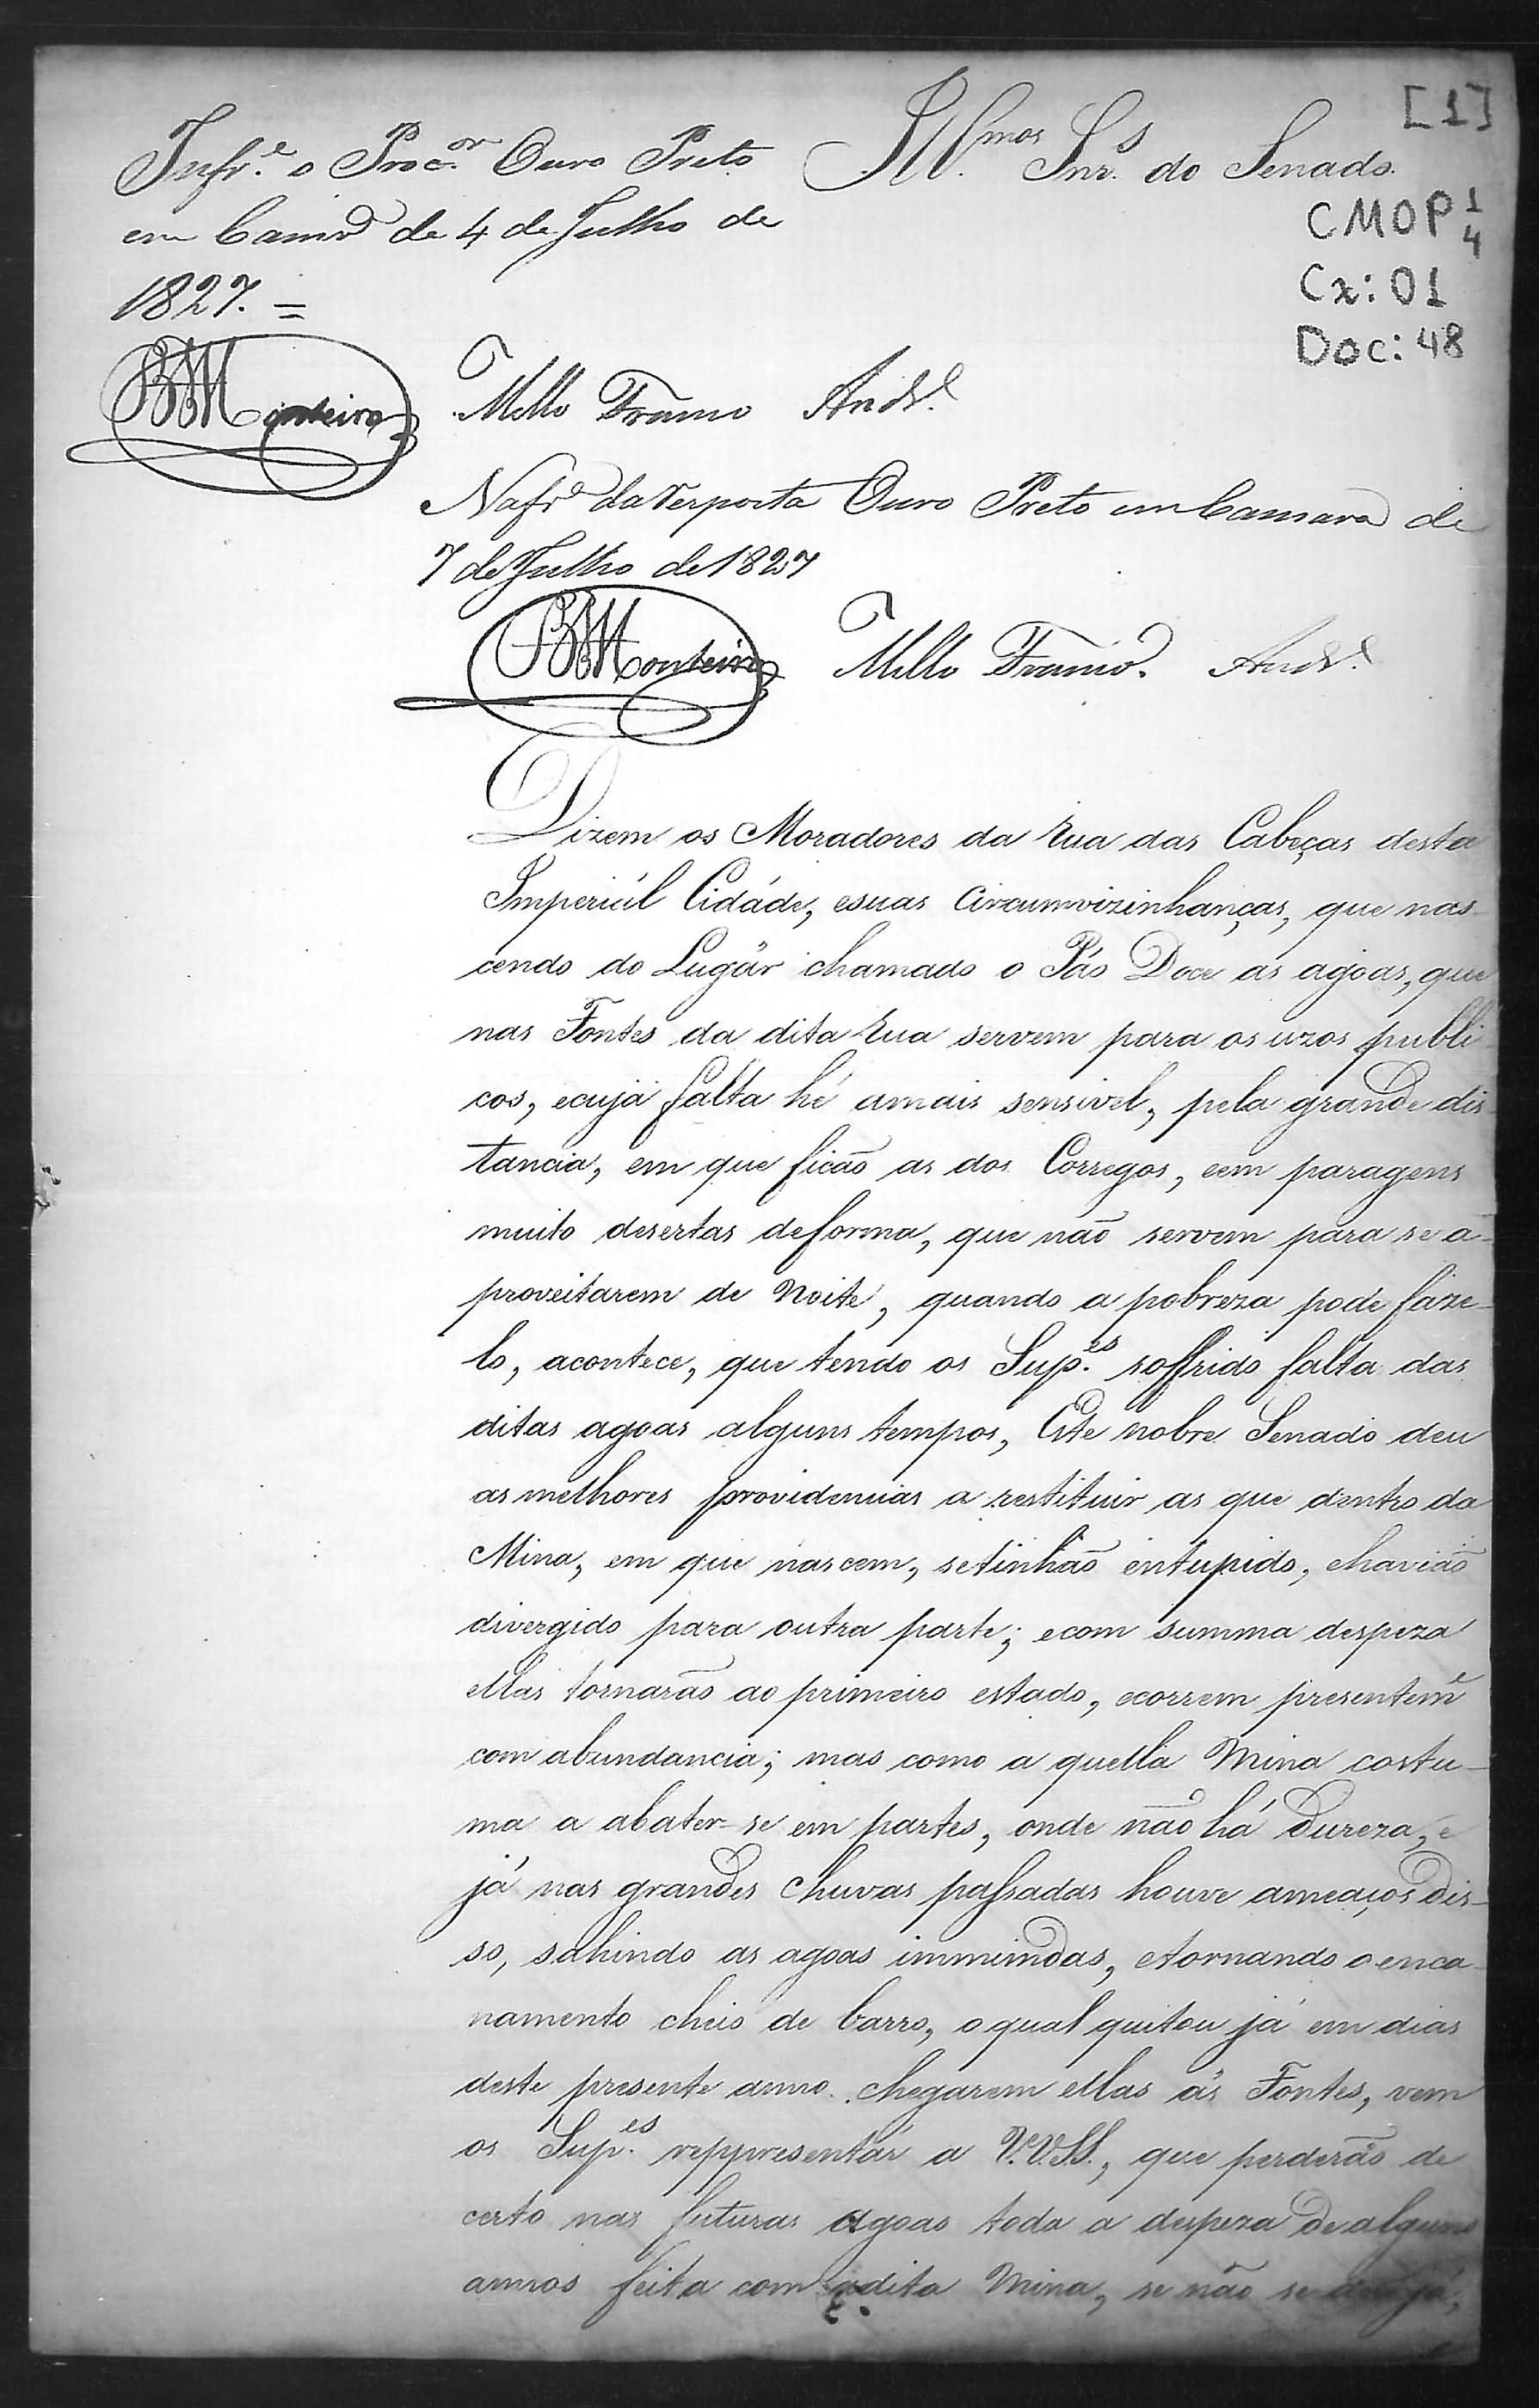 [1]
Infr.e o Proc.or Ouro Preto
em Camr.a de 4 de Julho de
1827. =
Ill.mos Snr.s do Senado.
CMOP 1/4
Cx: 01
Doc: 48
Monteiro Mello Franco Andr.e
Na fr.e da resposta Ouro Preto em Camara de
7 de Julho de 1827
Monteiro Mello Franco. Andr.e
Dizem os Moradores da rua das Cabeças desta
Imperiál Cidáde, esuas Circumvizinhanças, que nas-
cendo do Lugár chamado o Páo Doce as agoas, que
nas Fontes da dita rua servem para os uzos publi-
cos, ecuja falta hé amais sensivel, pela grande dis-
tancia, em que ficão as dos Corregos, eem paragens
muito desertas deforma, que não servem para se a-
proveitarem de Noite, quando a pobreza pode faze-
lo, acontece, que tendo os Sup.es soffrido falta das
ditas agoas alguns tempos, Este nobre Senado deu
as melhores providencias a restituir as que dentro da
Mina, em que nascem, setinhão entupido, ehavião
divergido para outra parte; ecom summa despeza
ellas tornarão ao primeiro estado, ecorrem presentem.e
com abundancia; mas como a quella Mina costu-
ma a abater-se em partes, onde não há dureza, e
já nas grandes chuvas passadas houve ameaços dis-
so, sahindo as agoas immundas, etornando o enca-
namento cheio de barro, oqual quitou já em dias
deste presente anno chegarem ellas ás Fontes, vem
os Sup.es reppresentár a V.V.S.S., que perderão de
certo nas futuras agoas toda a despeza de alguns
annos feita com adita Mina, se não se já,